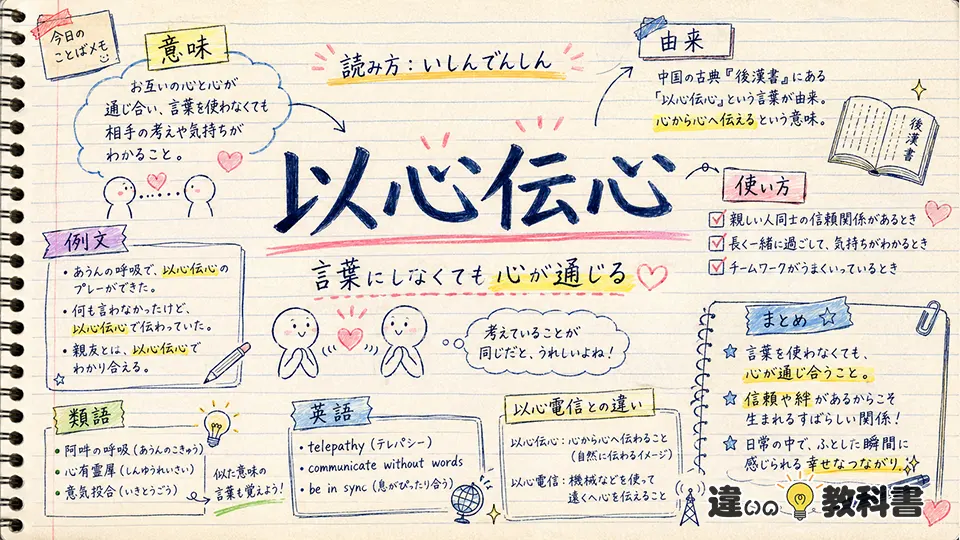 今日の
ことばメモ
意味
お互いの心と心が
通じ合い、言葉を使わなくても
相手の考えや気持ちが
わかること。
読み方：いしんでんしん
由来
中国の古典『後漢書』にある
「以心伝心」という言葉が由来。
心から心へ伝えるという意味。
後漢書
以心伝心
言葉にしなくても心が通じる
考えていることが
同じだと、うれしいよね！
使い方
親しい人同士の信頼関係があるとき
長く一緒に過ごして、気持ちがわかるとき
チームワークがうまくいっているとき
例文
・あうんの呼吸で、以心伝心の
プレーができた。
・何も言わなかったけど、
以心伝心で伝わっていた。
・親友とは、以心伝心で
わかり合える。
まとめ
言葉を使わなくても、
心が通じ合うこと。
信頼や絆があるからこそ
生まれるすばらしい関係！
日常の中で、ふとした瞬間に
感じられる幸せなつながり。
類語
・阿吽の呼吸（あうんのこきゅう）
・心有霊犀（しんゆうれいさい）
・意気投合（いきとうごう）
似た意味の
言葉も覚えよう！
英語
・telepathy（テレパシー）
・communicate without words
・be in sync（息がぴったり合う）
以心電信との違い
以心伝心：心から心へ伝わること
（自然に伝わるイメージ）
以心電信：機械などを使って
遠くへ心を伝えること
違いの教科書